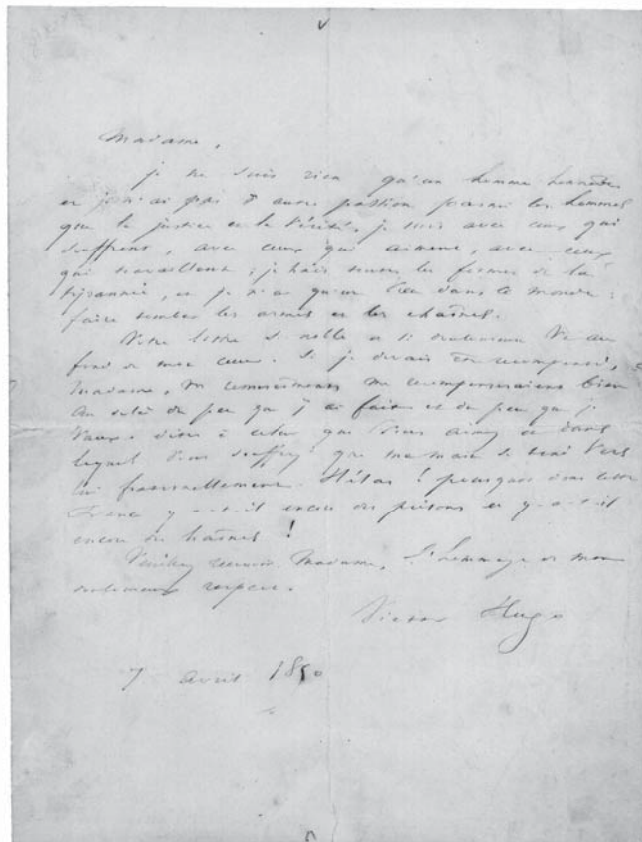 Madame,
je ne suis rien qu'un homme honnête
et je n'ai pas d'autre passion parmi les hommes
que la justice et la vérité, je suis avec ceux qui
souffrent, avec ceux qui aiment, avec ceux
qui travaillent ; je hais toutes les formes de la
tyrannie, et je n'ai qu'un but dans ce monde :
faire tomber les armes et les chaînes.
Votre lettre si noble et si douloureuse va au
fond de mon cœur. Si je devais être récompensé,
Madame, vos remerciements me récompenseraient bien
au delà du peu que j'ai fait et du peu que je
vaux. dites à celui que vous aimez et dans
lequel vous souffrez que ma main se tend vers
lui fraternellement. Hélas ! pourquoi dans cette
France y a-t-il encore des prisons et y-a-t-il
encore des haines !
Veuillez recevoir Madame, l'hommage de mon
douloureux respect.
Victor Hugo
7 avril 1850